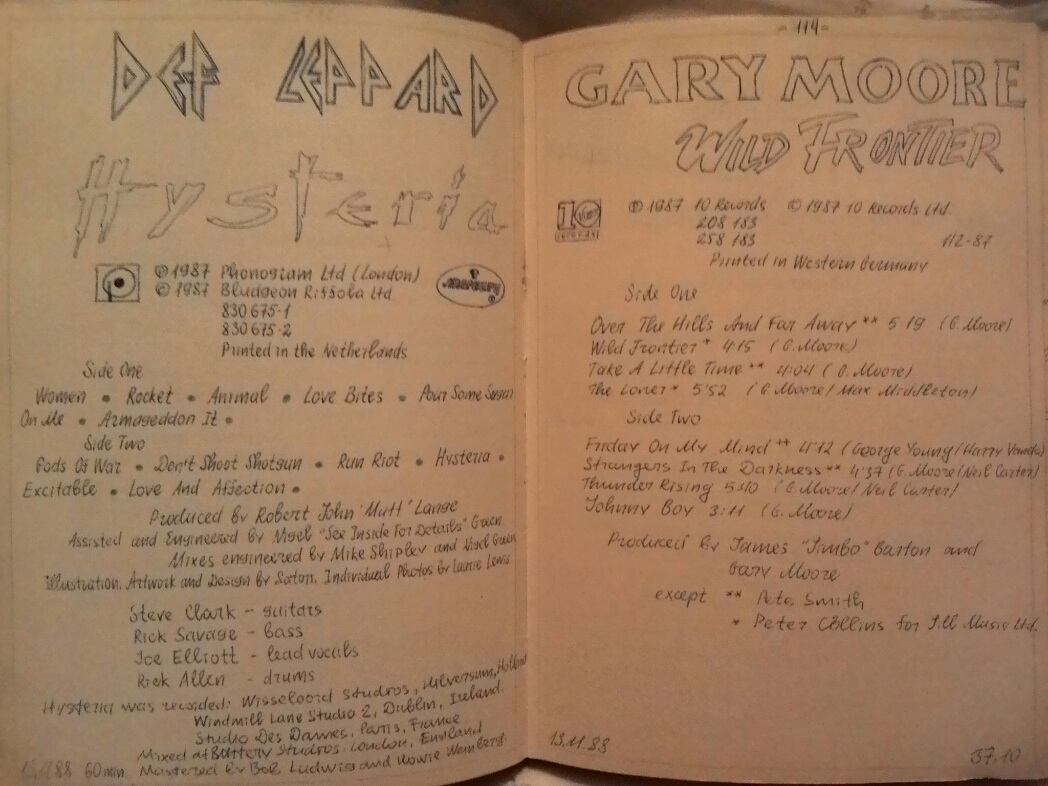 DEF LEPPARD
Hysteria
℗ 1987 Phonogram Ltd (London)
© 1987 Bludgeon Riffola Ltd.
mercury
830 675-1
830 675-2
Printed in the Netherlands
Side One
Women • Rocket • Animal • Love Bites • Pour Some Sugar
On Me • Armageddon It •
Side Two
Gods Of War • Don't Shoot Shotgun • Run Riot • Hysteria •
Excitable • Love And Affection •
Produced by Robert John 'Mutt' Lange
Assisted and Engineered by Nigel "See Inside For Details" Green.
Mixes engineered by Mike Shipley and Nigel Green
Illustration, Artwork and Design by Satori, Individual Photos by Laurie Lewis
Steve Clark - guitars
Rick Savage - bass
Joe Elliott - lead vocals
Rick Allen - drums
Hysteria was recorded: Wisseloord Studios, Hilversum, Holland
Windmill Lane Studio 2, Dublin, Ireland.
Studio Des Dames, Paris, France
Mixed at Battery Studios, London, England
13.11.88 60min. Mastered by Bob Ludwig and Howie Weinberg.
- 114 -
GARY MOORE
WILD FRONTIER
10 records
℗ 1987 10 Records © 1987 10 Records Ltd.
208 183
258 183 1/2-87
Printed in Western Germany
Side One
Over The Hills And Far Away ** 5'19 (G. Moore)
Wild Frontier * 4'15 (G. Moore)
Take A Little Time ** 4:04 (G. Moore)
The Loner * 5'52 (G Moore/Max Middleton)
Side Two
Friday On My Mind ** 4'12 (George Young/Harry Vanda)
Strangers In The Darkness ** 4'37 (G. Moore/Neil Carter)
Thunder Rising 5:10 (G. Moore/Neil Carter)
Johnny Boy 3:11 (G. Moore)
Produced by James "Jimbo" Barton and
Gary Moore
except ** Pete Smith
* Peter Collins for Jill Music Ltd.
13.11.88
37.10